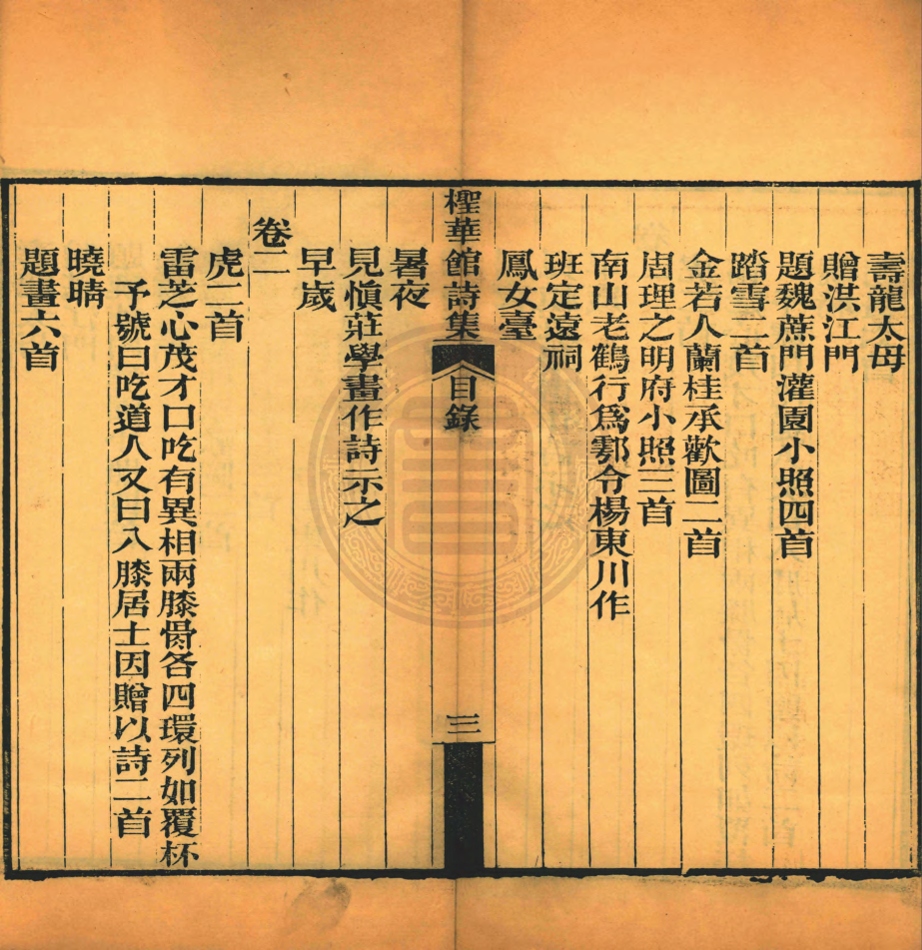 壽龍太母
贈洪江門
題魏蔗門灌園小照四首
踏雪二首
金若人蘭桂承歡圖二首
周理之明府小照三首
南山老鶴行爲鄠令楊東川作
班定遠祠
鳳女臺
檉華館詩集 目錄 三
暑夜
見愼莊學畫作詩示之
早歲
卷二
虎二首
雷芝心茂才口吃有異相兩膝骨各四環列如覆杯
予號曰吃道人又曰八膝居士因贈以詩二首
曉晴
題畫六首